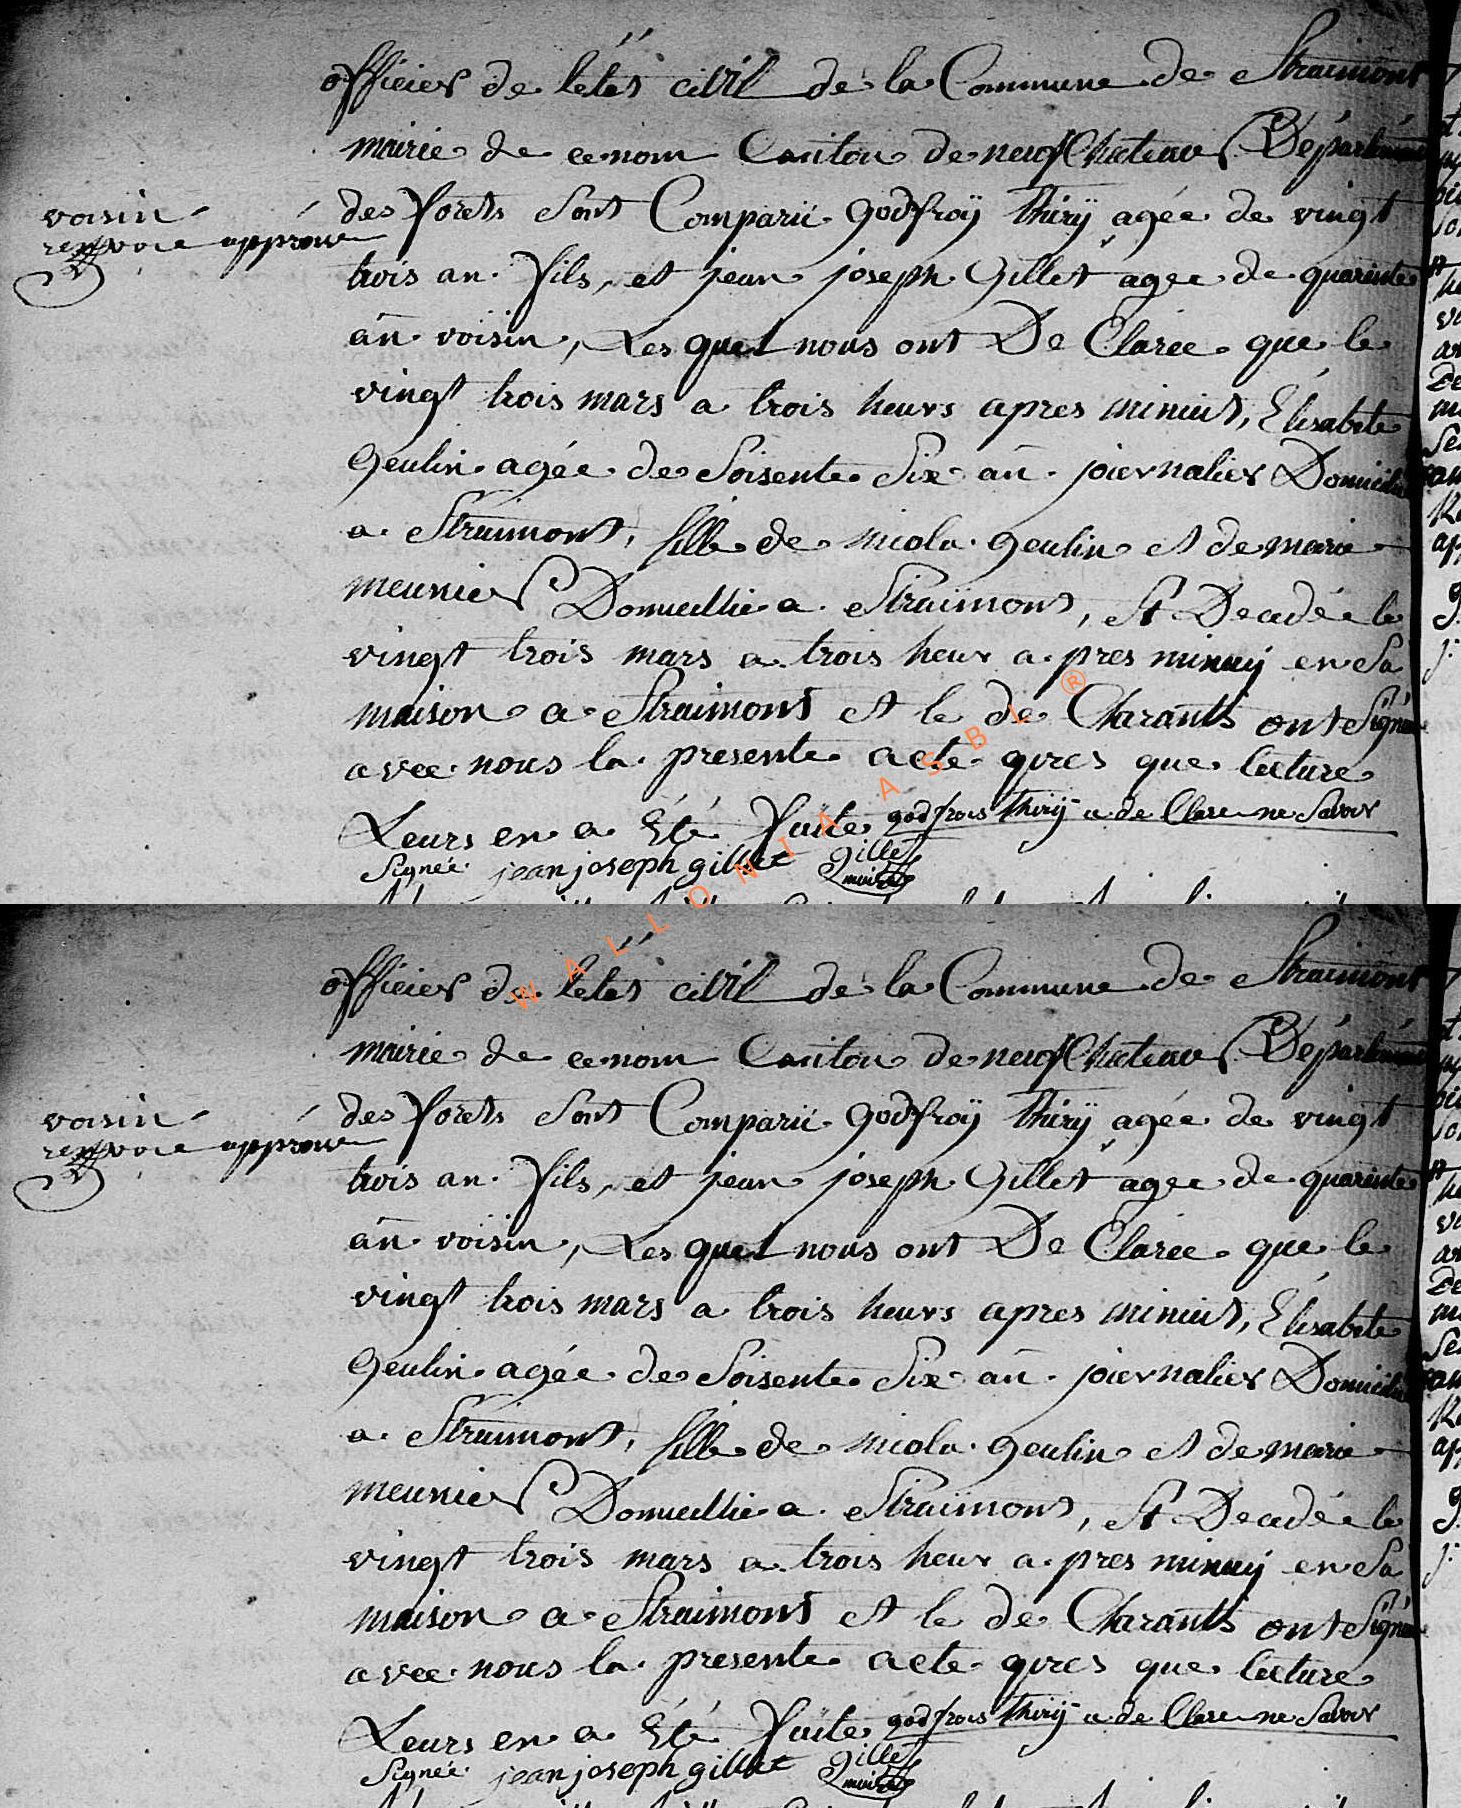 officier de letés civil de la Commune de Straimont
mairie de ce nom Canton de neufChateau Départemen
des forets Sont Comparü godfroÿ thirÿ agée de vingt
voisin
renvoie approuv
trois an fils, et jean joseph Gillet agée de quarente
an voisin, Les quel nous ont De Clarée que le
vingt trois mars a trois heurs apres minuit, Élisabete
Geulin agée de Soisente Six an journalier Domicilié
a Straimont, fille de nicola geulin et de marie
meunier Domicillié a Straimont, Et Decadé le
vingt trois mars a trois heur a pres minuij en Sa
maison a Straimont et le de Clarants ont Signée
avec nous la presente acte qpres que lecture
Leurs en a Été faite godfrois thirÿ a de Clare ne Savoir
Signée jean joseph gillet Gillet
maire
WALLONIA ASBL ®
officier de letés civil de la Commune de Straimont
mairie de ce nom Canton de neufChateau Départemen
des forets Sont Comparü godfroÿ thirÿ agée de vingt
voisin
renvoie approuv
trois an fils, et jean joseph Gillet agée de quarente
an voisin, Les quel nous ont De Clarée que le
vingt trois mars a trois heurs apres minuit, Élisabete
Geulin agée de Soisente Six an journalier Domicilié
a Straimont, fille de nicola geulin et de marie
meunier Domicillié a Straimont, Et Decadé le
vingt trois mars a trois heur a pres minuij en Sa
maison a Straimont et le de Clarants ont Signée
avec nous la presente acte qpres que lecture
Leurs en a Été faite godfrois thirÿ a de Clare ne Savoir
Signée jean joseph gillet Gillet
maire